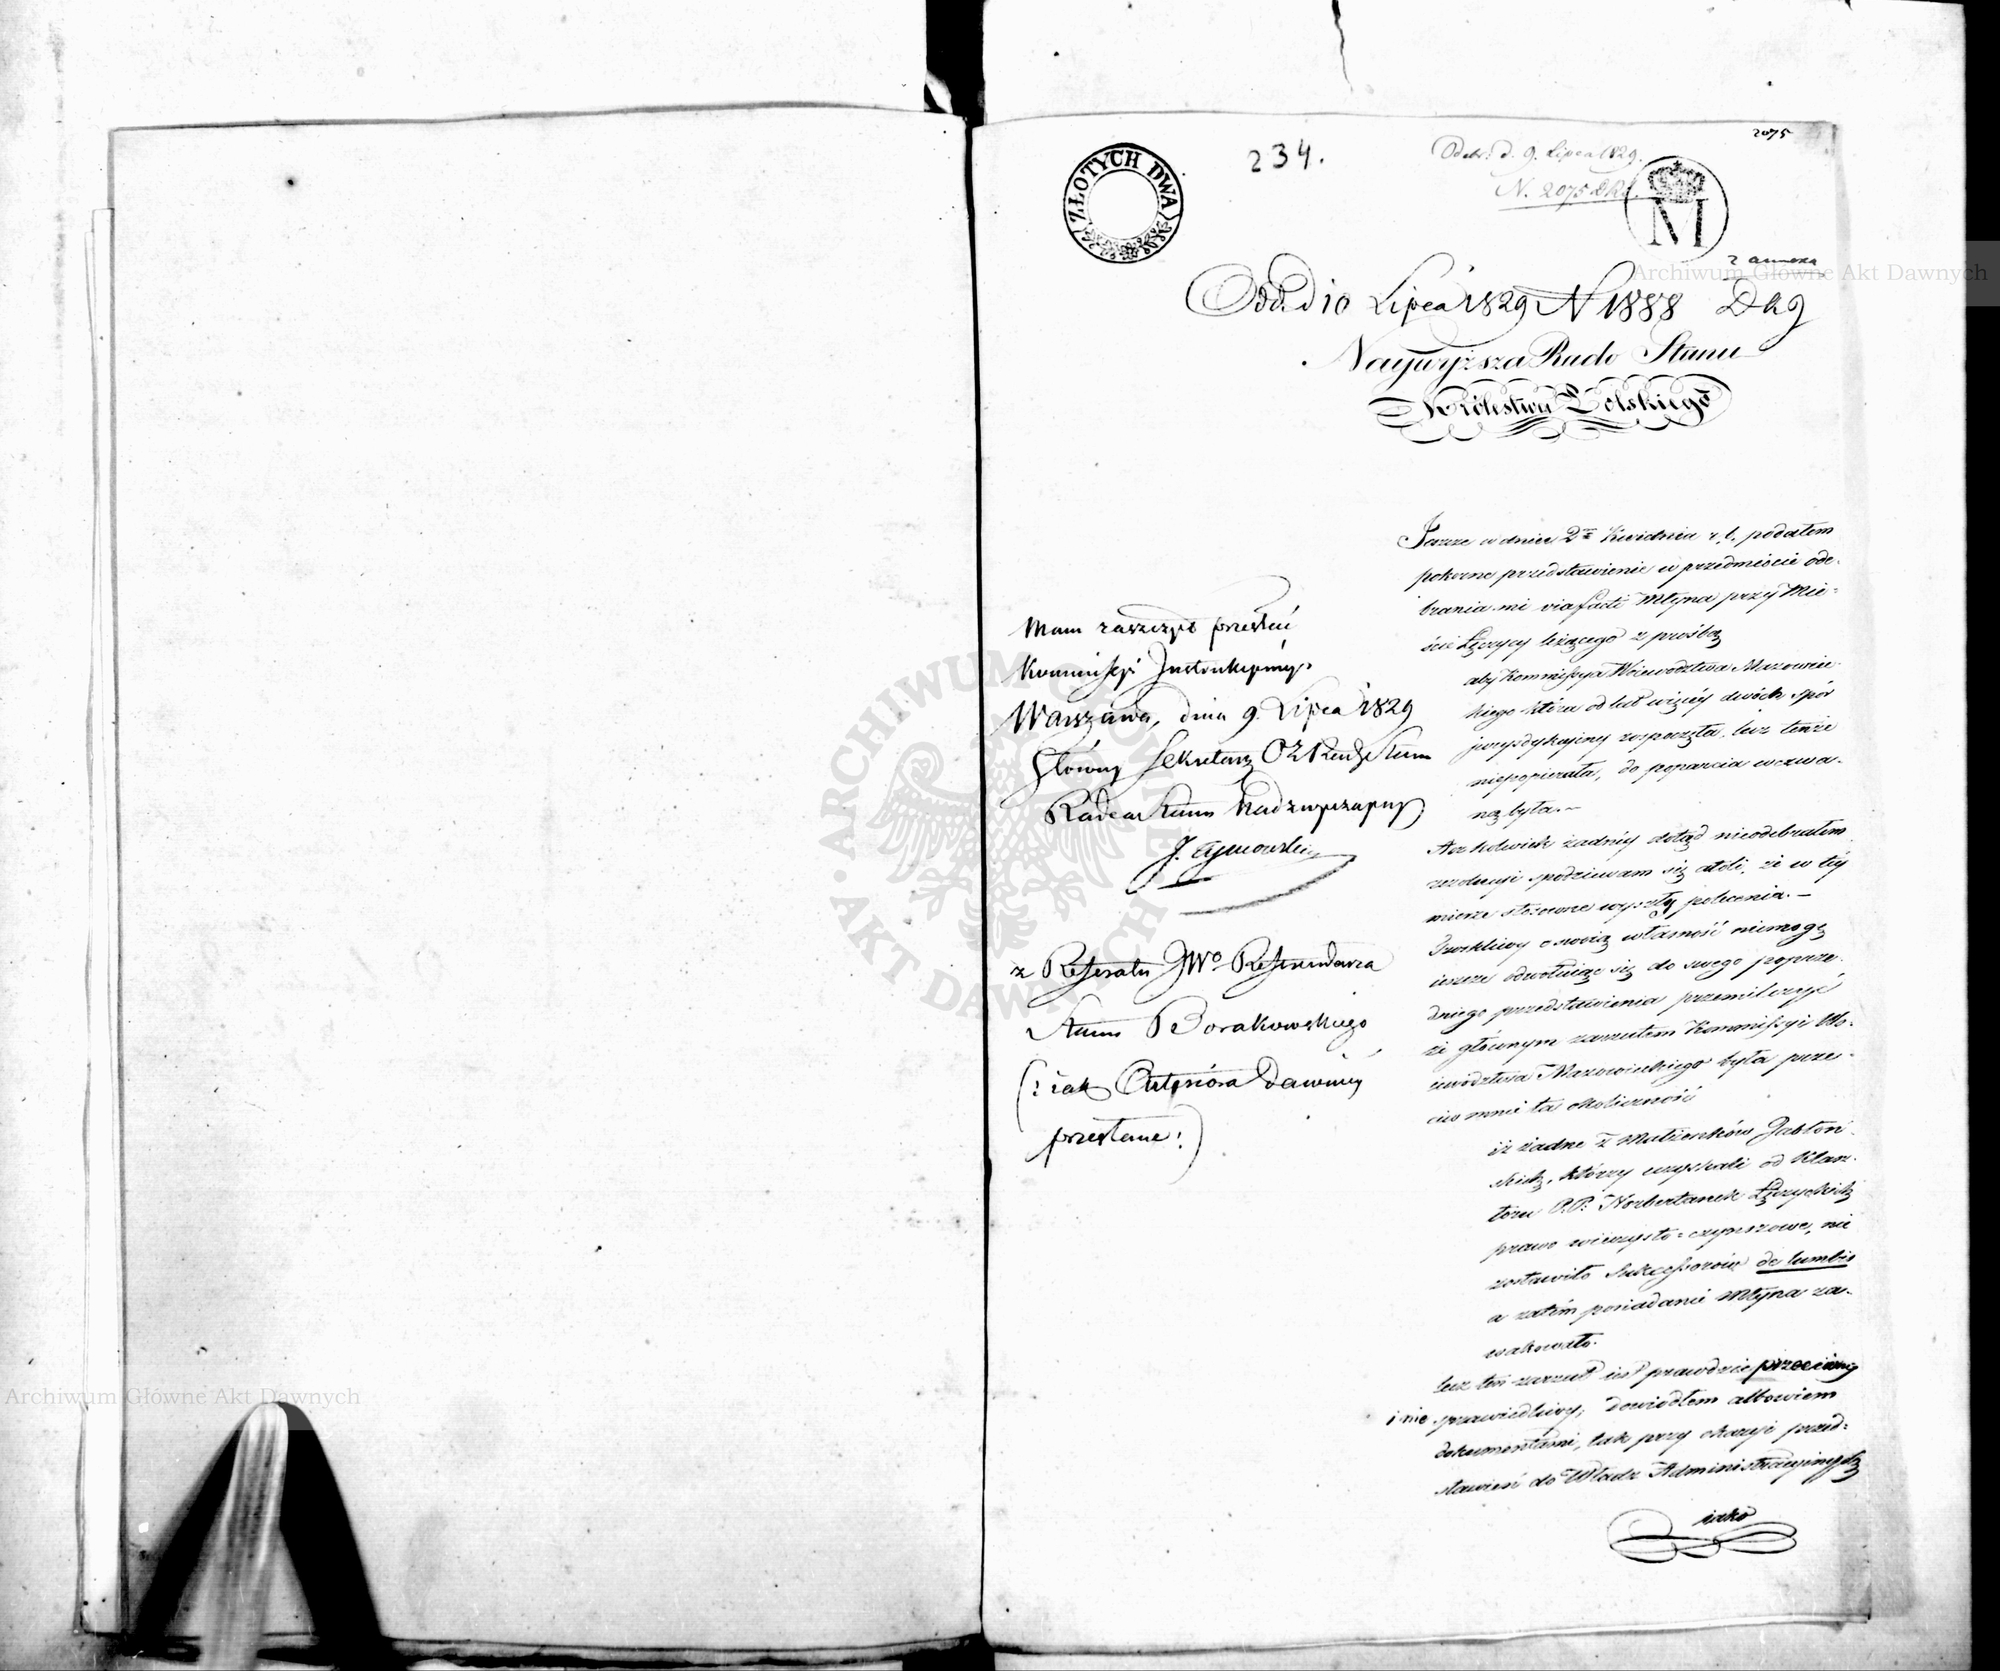 2075
ZŁOTYCH DWA
234.
Odebr: d. 9. Lipca 1829.
N. 2075 DKS.
M
z annexa
Odd. D 10 Lipca 1829 N 1888 Dkg
Naywyższa Rado Stanu
Królestwa Polskiego
Mam zaszczyt przesłać
Kommissyi Instrukcyiney
Warszawa, dnia 9. Lipca 1829
Główny Sekretarz Rady Stanu
Radca Stanu Nadzwyczayny
J. Tymowski
z Referatu JWo Referendarza
Stanu Borakowskiego
(: iak Anteriora dawniey
przesłane :)
Jeszcze w dniu 2 Kwietnia r. b. podałem
pokorne przedstawienie w przedmiocie ode-
brania mi via facti Młyna przy Mie-
ście Łęczycy leżącego z prośbą
aby Kommissya Woiewództwa Mazowiec-
kiego która od lat więcéy dwóch spór
jurysdykcyiny rozpoczęła, lecz tenże
niepopierała, do poparcia wezwa-
ną była.—
Aczkolwiek żadnéy dotąd nieodebrałem
rezolucyi spodziewam się atoli, że w téy
mierze stosowne wyszły polecenia.—
Troskliwy o swoią własność niemogę
ieszcze odwołuiąc się do swego poprze-
dniego przedstawienia przemilczyć
że głównym zarzutem Kommissyi Wo-
iewództwa Mazowieckiego była prze-
ciw mnie ta okoliczność
iż żadne z Małżonków Jabłoń-
skich, którzy uzyskali od Klasz-
toru P.P. Norbertanek Łęczyckich
prawo wieczysto-czynszowe, nie
zostawiło Sukcessorów de lumbis
a zatém posiadanie Młyna za-
wakowało.
lecz ten zarzut iest prawdzie przeciwny
i nie sprawiedliwy; dowiodłem albowiem
dokumentami, tak przy okazyi przed-
stawień do Władz Administracyinych
iako
Archiwum Główne Akt Dawnych
Archiwum Główne Akt Dawnych
ARCHIWUM GŁÓWNE
AKT DAWNYCH